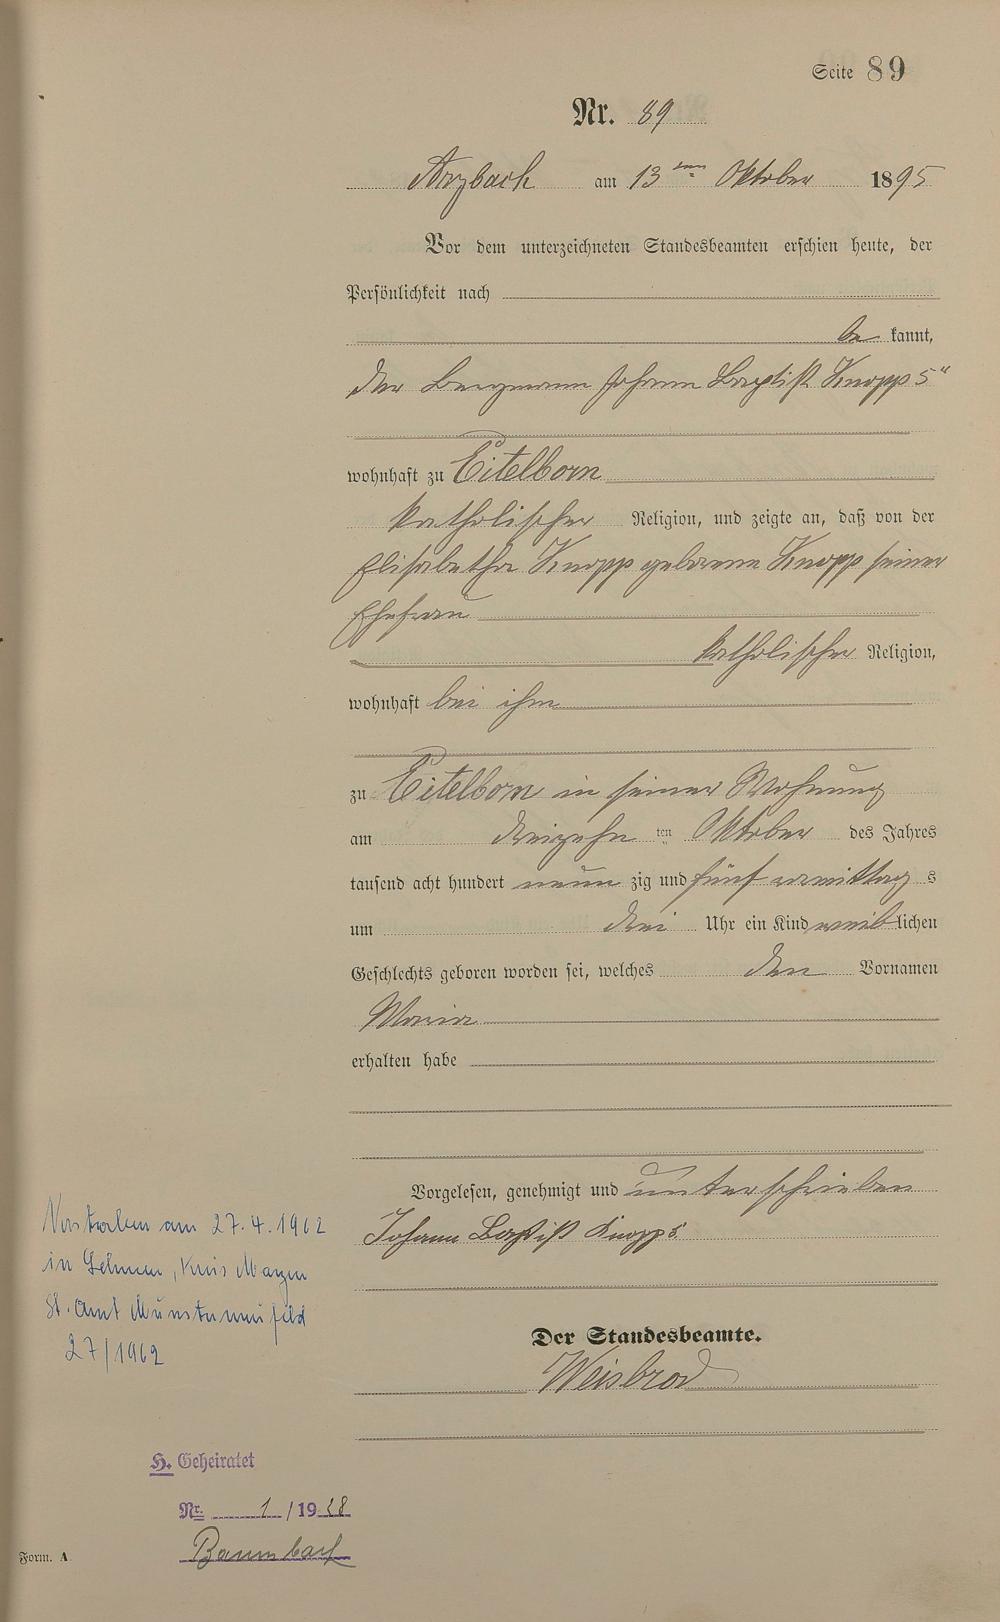 Seite 89
Nr. 89
Arzbach am 13ten Oktober 1895
Vor dem unterzeichneten Standesbeamten erschien heute, der
Persönlichkeit nach
be kannt,
der Bergmann Johann Baptist Knopp 5"
wohnhaft zu Eitelborn
katholischer Religion, und zeigte an, daß von der
Elisabetha Knopp geborene Knopp seiner
Ehefrau
katholischer Religion,
wohnhaft bei ihm
zu Eitelborn in seiner Wohnung
am dreizehn ten Oktober des Jahres
tausend acht hundert neun zig und fünf vormittag s
um drei Uhr ein Kind weiblichen
Geschlechts geboren worden sei, welches den Vornamen
Maria
erhalten habe
Vorgelesen, genehmigt und unterschrieben
Johann Baptist Knopp 5.
Der Standesbeamte.
Weisbrod
Verstorben am 27.4.1962
in Lehmen, Kreis Mayen
St. Amt Münstermaifeld
27/1962
H. Geheiratet
Nr. 1/19
Baumbach
Form. A.